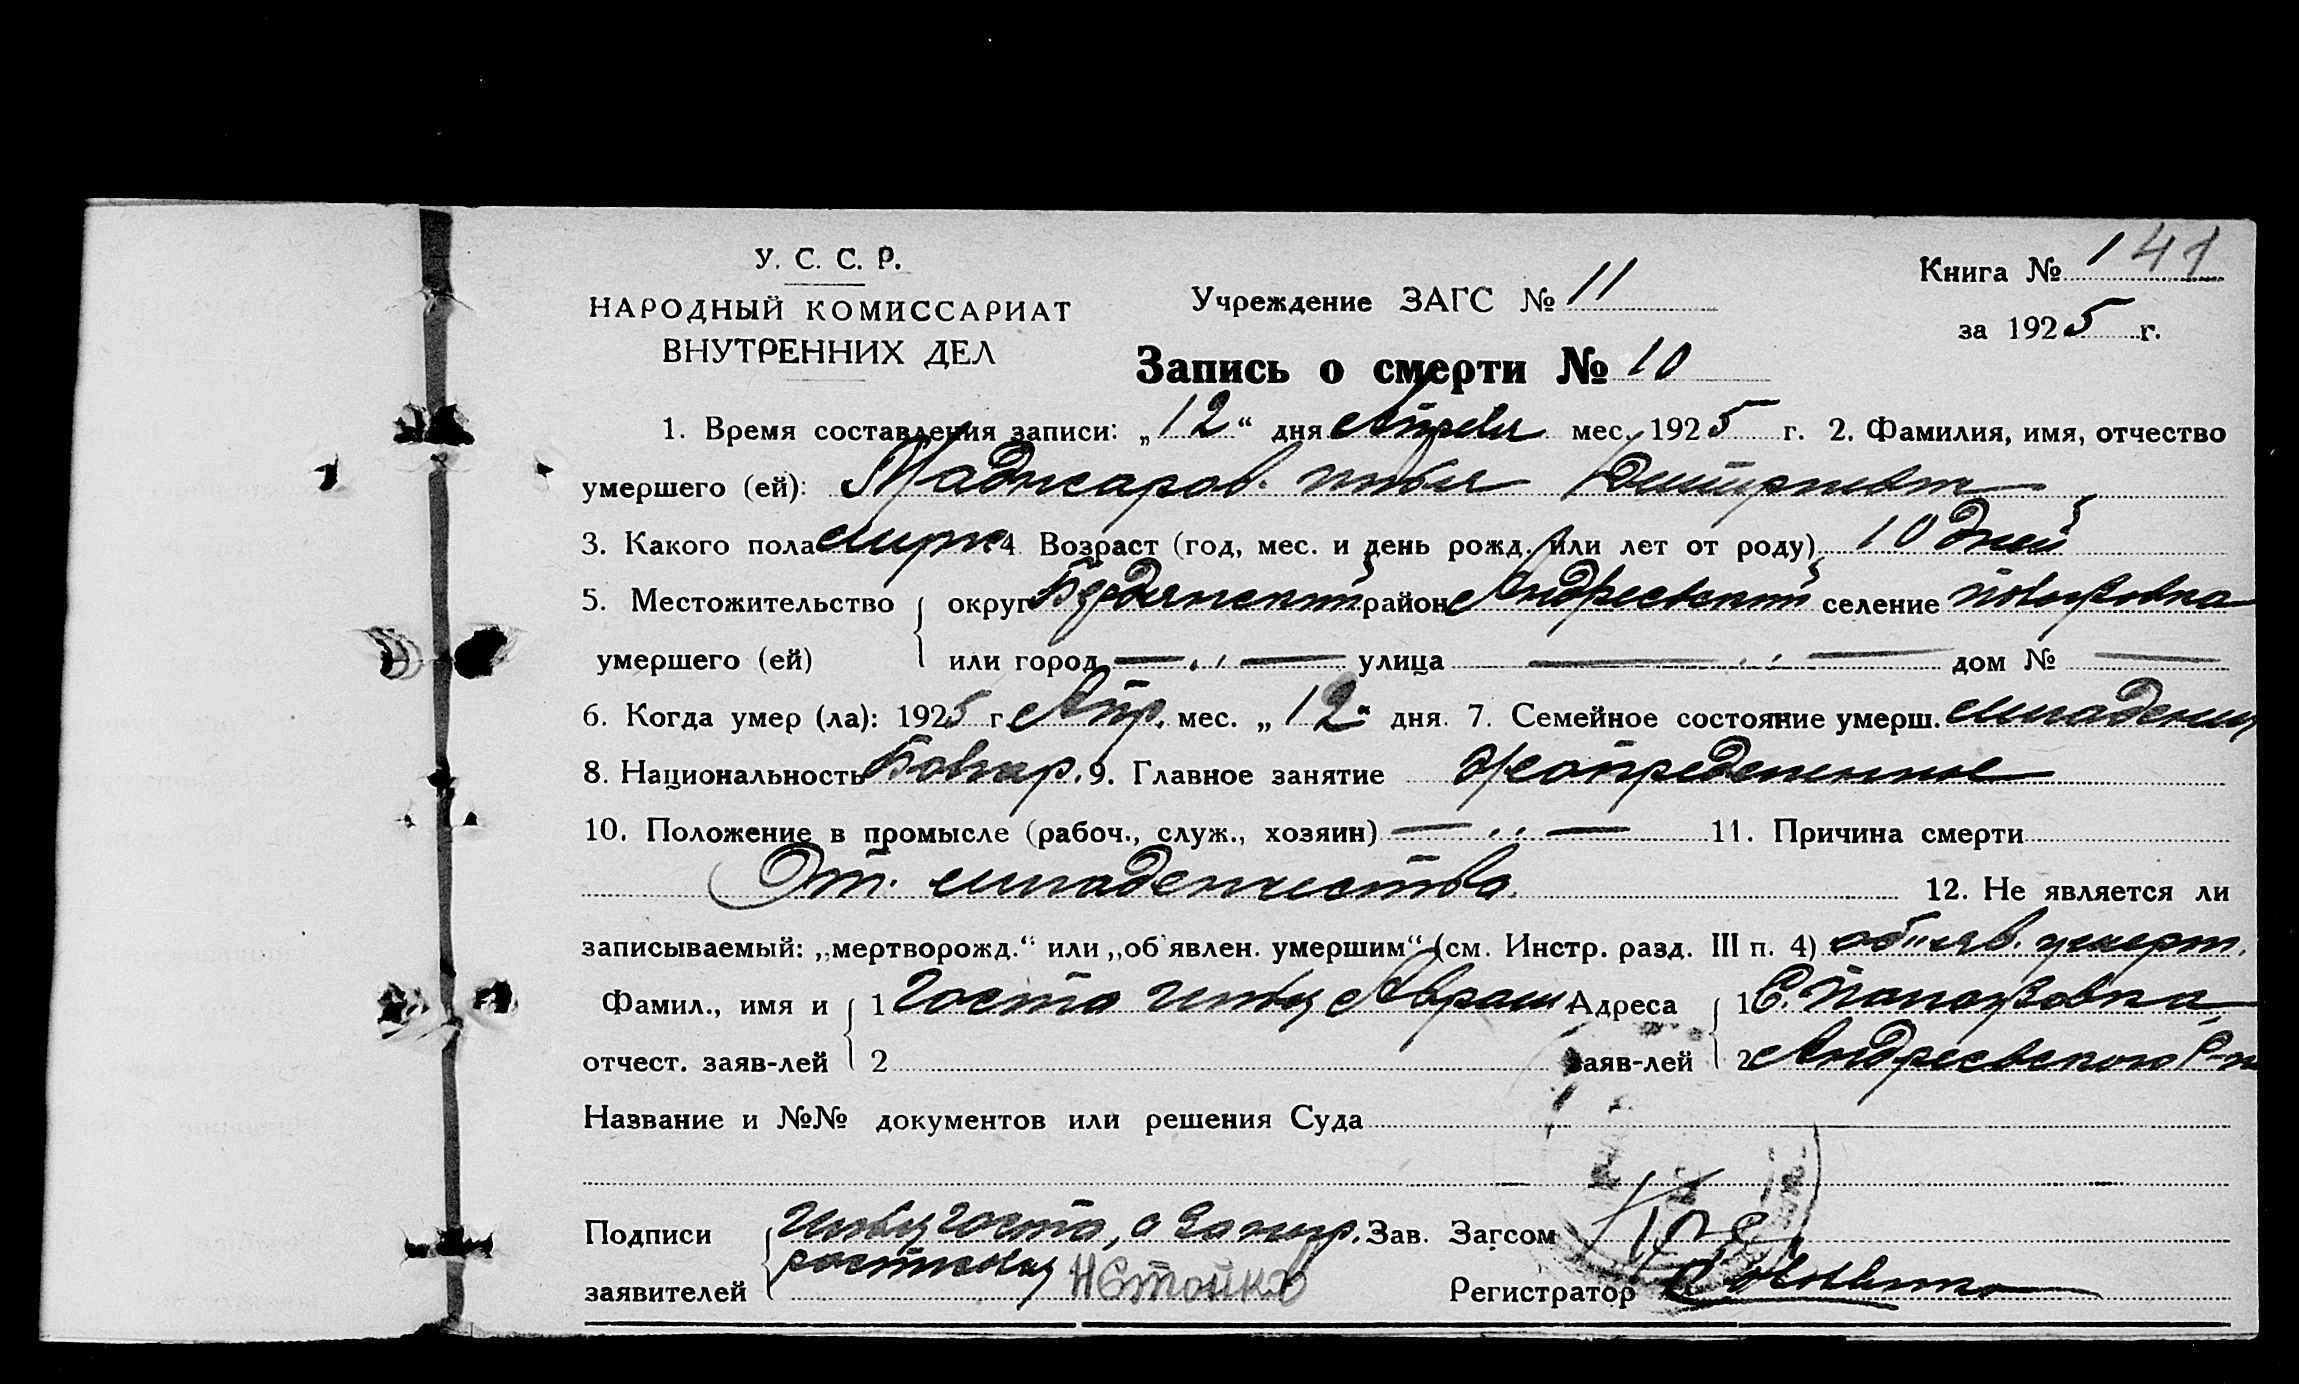 У. С. С. Р.
НАРОДНЫЙ КОМИССАРИАТ
ВНУТРЕННИХ ДЕЛ
Учреждение ЗАГС № 11
Книга № 1 41
за 1925 г.
Запись о смерти № 10
1. Время составления записи: „12“ дня Апреля мес. 1925 г. 2. Фамилия, имя, отчество
умершего (ей): Маджаров. Илья
3. Какого пола 4 Возраст (год, мес. и день рожд. или лет от роду) 10 дней
5. Местожительство округ Бердянский район Андреевский селение
умершего (ей) или город — „ — улица — „ — дом № —
6. Когда умер (ла): 1925 г Апр. мес. „12“ дня. 7. Семейное состояние умерш. младенец
8. Национальность Болгар. 9. Главное занятие
10. Положение в промысле (рабоч., служ., хозяин) — „ — 11. Причина смерти
От младенчества 12. Не является ли
записываемый: „мертворожд.“ или „об'явлен. умершим“ (см. Инстр. разд. III п. 4) об"яв. умерт.
Фамил., имя и 1 Адреса 1 С.
отчест. заяв-лей 2 заяв-лей 2 Андреевского Р-н
Название и №№ документов или решения Суда
Подписи Зав. Загсом
заявителей НСтойко Регистратор